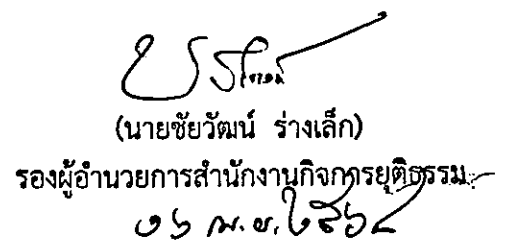 (นายชัยวัฒน์ ร่างเล็ก)
รองผู้อำนวยการสำนักงานกิจการยุติธรรม
๑๖ พ.ย. ๒๕๖๔